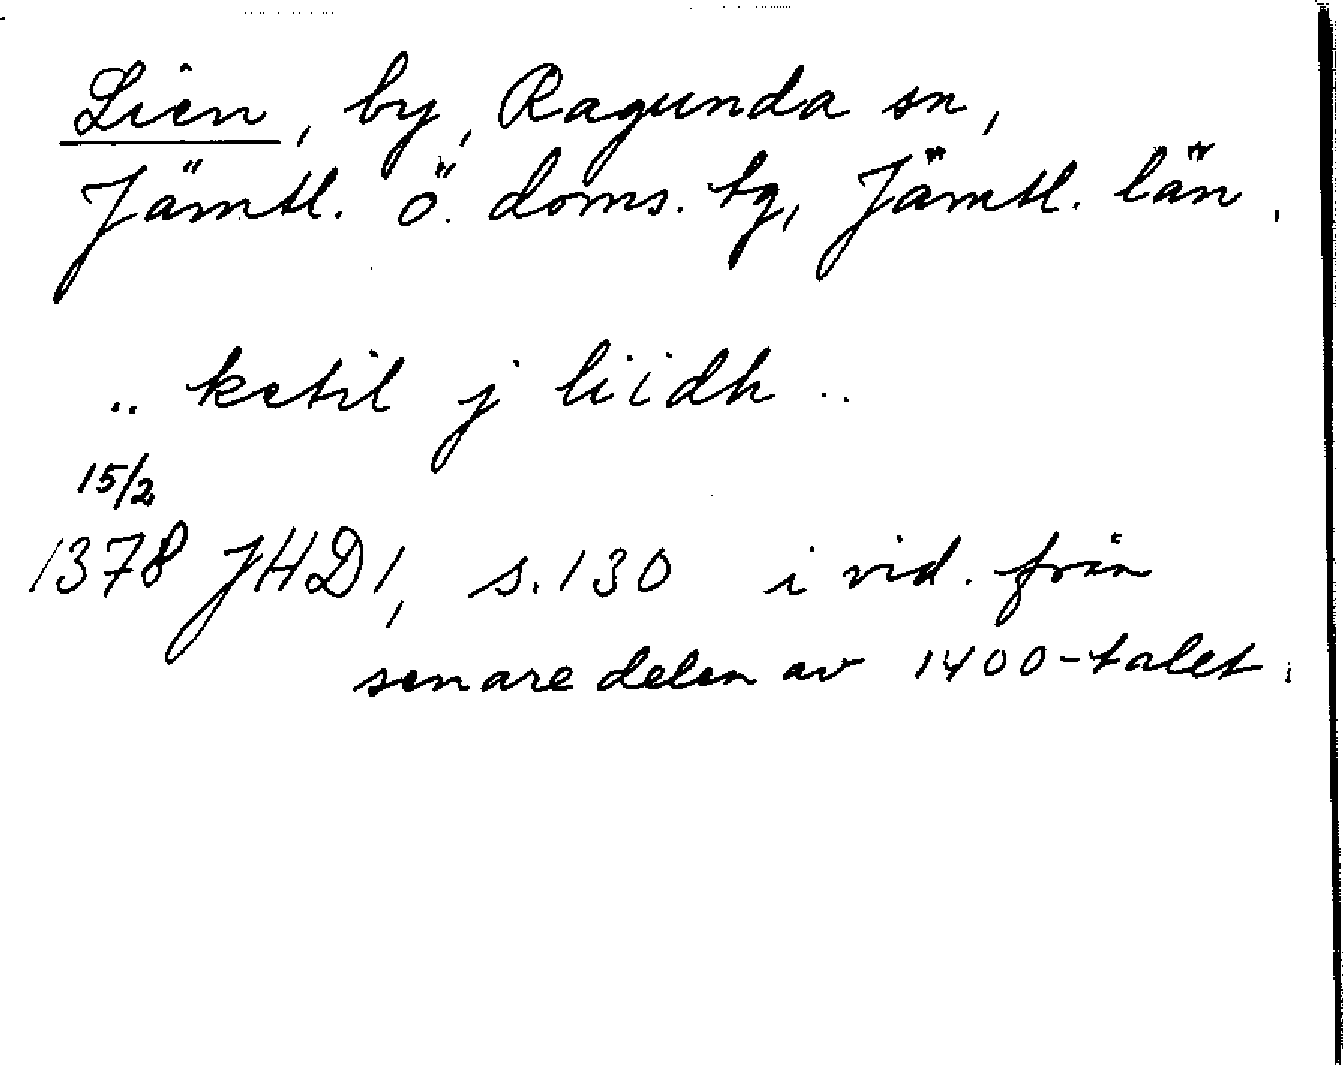 Lien, by, Ragunda sn,
Jämtl. ö. doms. tg, Jämtl. län.
.. ketil j liidh ..
15/2
1378 JHD1, s. 130 i vid. från
senare delen av 1400-talet.